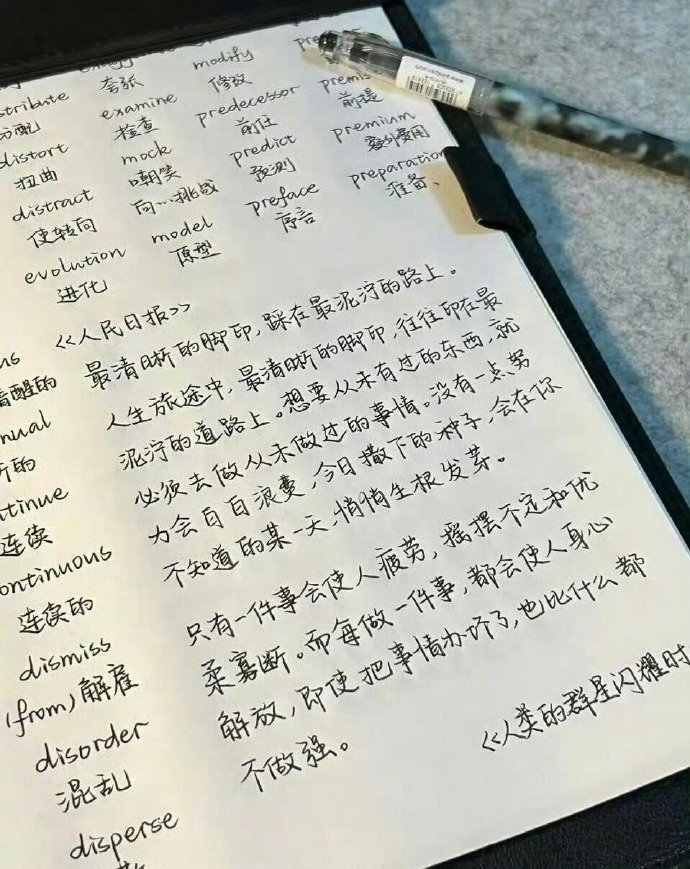 modify
distribute
夸张
修改
分配
examine
predecessor
premis
distort
检查
前任
前提
扭曲
mock
predict
premium
distract
嘲笑
预测
额外费用
使转向
向…挑战
preface
preparation
evolution
model
序言
准备、
进化
原型
<<人民日报>>
最清晰的脚印,踩在最泥泞的路上。
人生旅途中,最清晰的脚印,往往印在最
泥泞的道路上。想要从未有过的东西,就
必须去做从未做过的事情。没有一点努
力会白白浪费,今日撒下的种子,会在你
不知道的某一天,悄悄生根发芽。
只有一件事会使人疲劳,摇摆不定和优
柔寡断。而每做一件事,都会使人身心
解放,即使把事情办坏了,也比什么都
不做强。
<<人类的群星闪耀时
清醒的
nual
的
ntinue
连续
continuous
连续的
dismiss
(from)解雇
disorder
混乱
disperse